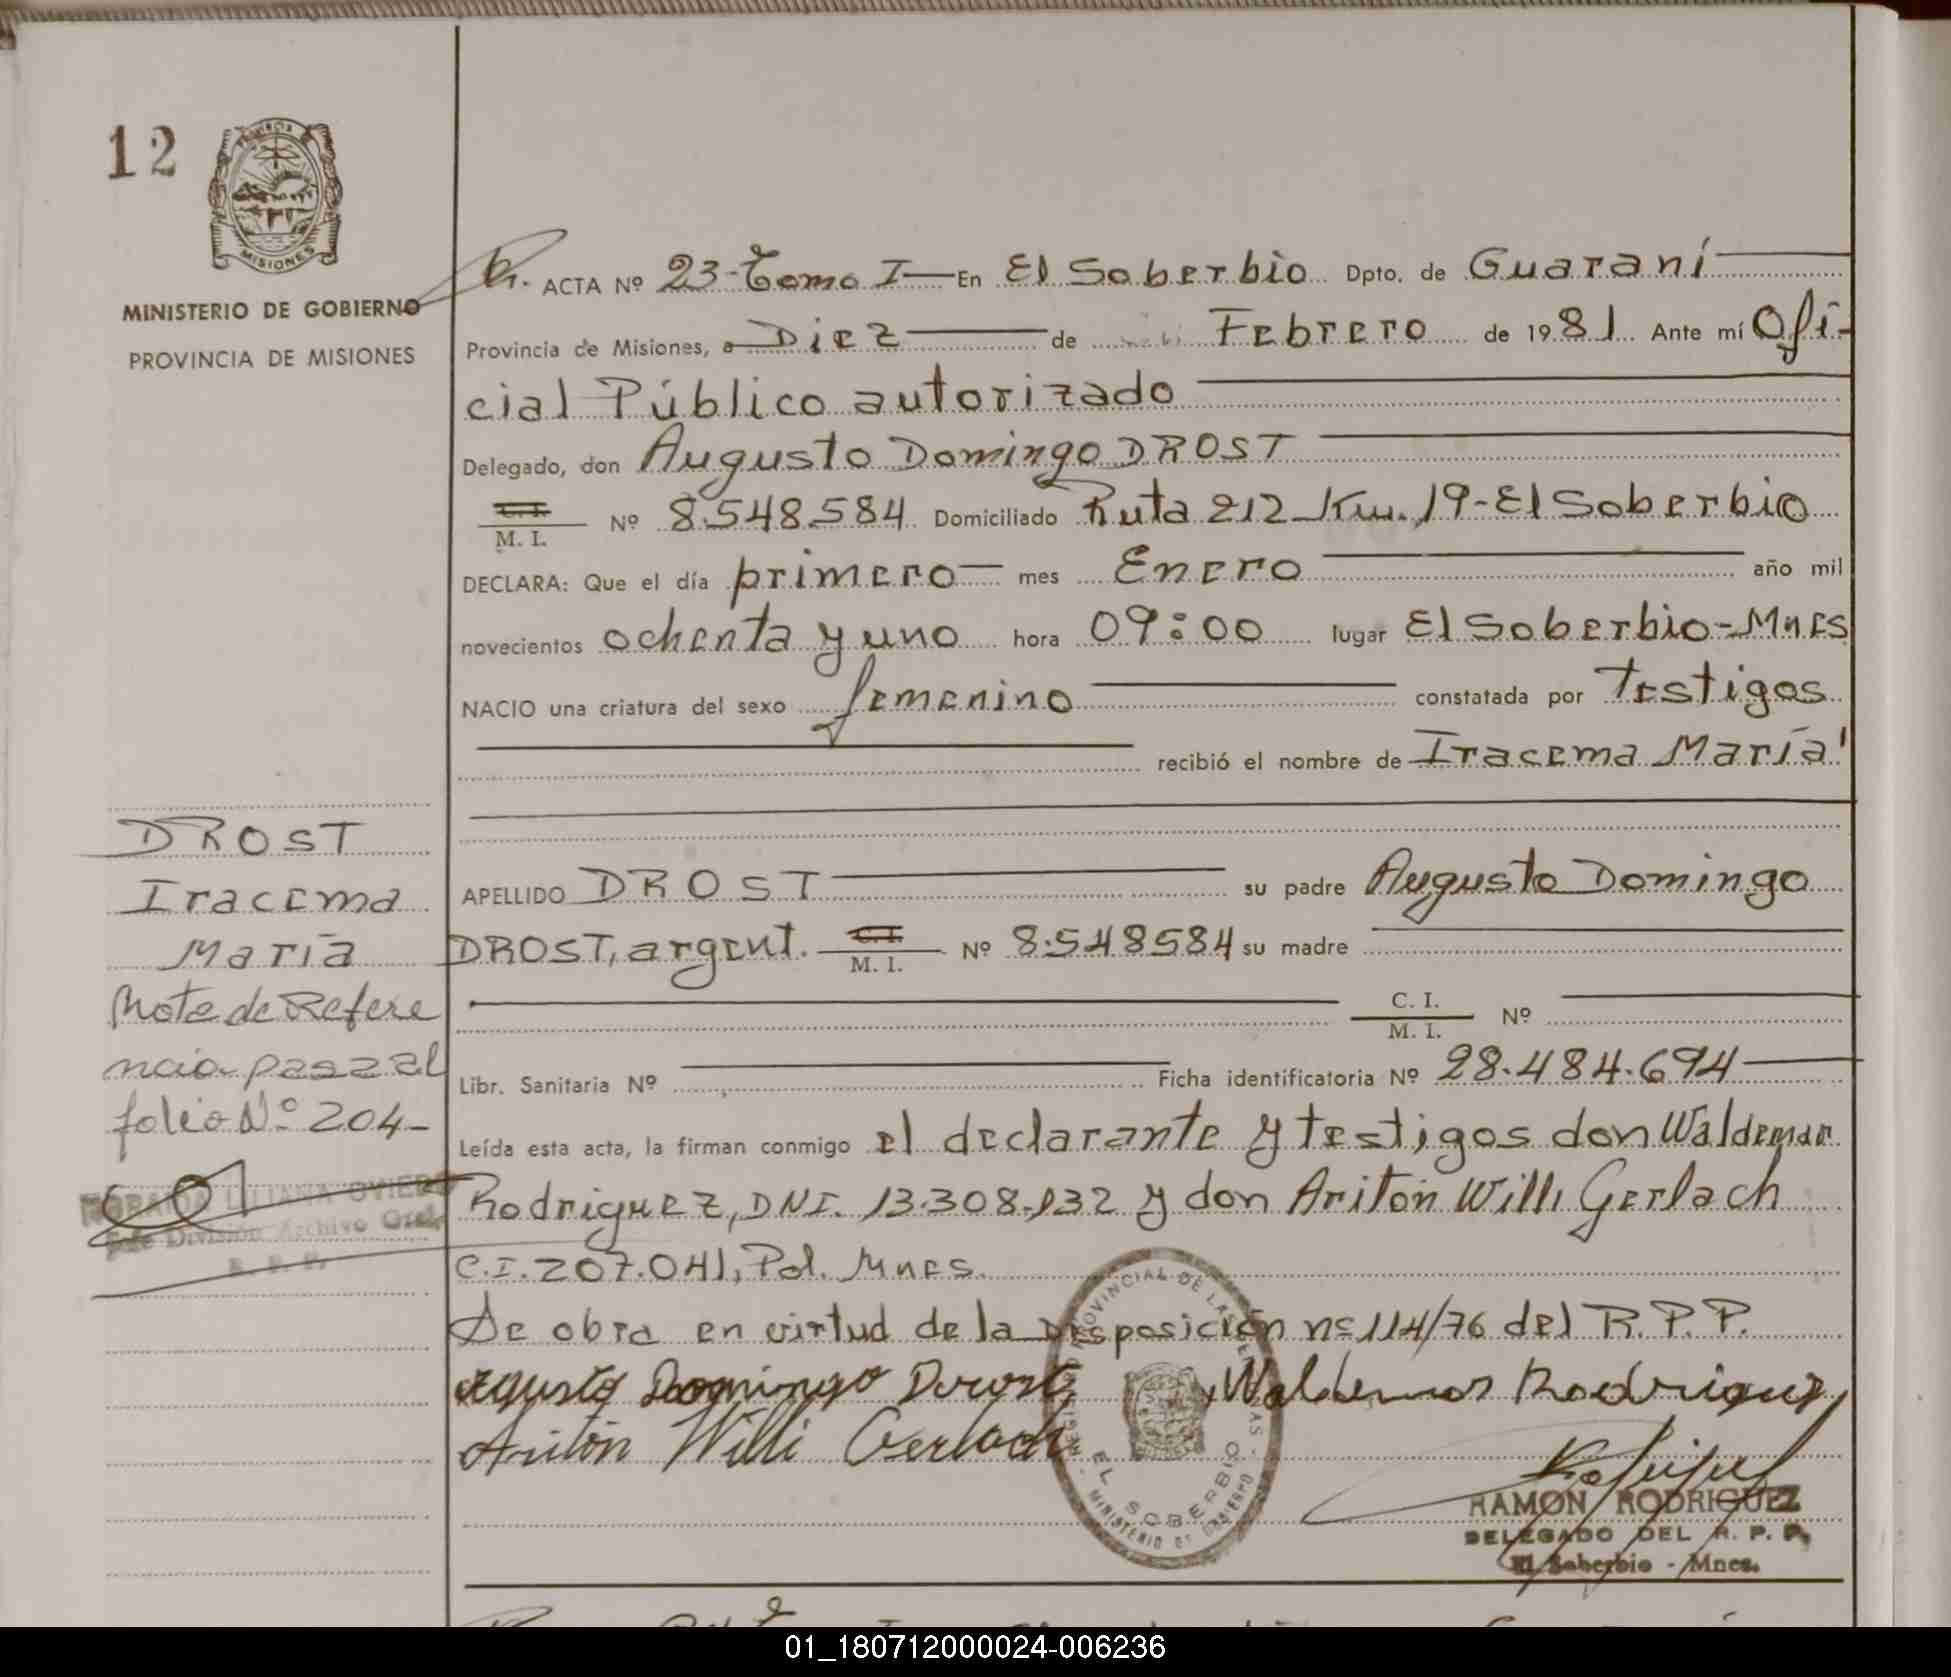 12
PROVINCIA
MISIONES
MINISTERIO DE GOBIERNO
PROVINCIA DE MISIONES
ACTA Nº 23-Tomo I- En El Soberbio Dpto. de Guaraní
Provincia de Misiones, a Diez de Febrero de 1981 Ante mí Ofi-
cial Público autorizado
Delegado, don Augusto Domingo DROST
C. I. M. I. Nº 8.548.584 Domiciliado Ruta 212 Km. 19-El Soberbio
DECLARA: Que el día primero mes Enero año mil
novecientos ochenta y uno hora 09:00 lugar El Soberbio-Mnes
NACIO una criatura del sexo femenino constatada por Testigos
recibió el nombre de Iracema María
APELLIDO DROST su padre Augusto Domingo
DROST, argent. C. I. M. I. Nº 8.548584 su madre
C. I. M. I. Nº
Libr. Sanitaria Nº Ficha identificatoria Nº 28.484.694
Leída esta acta, la firman conmigo el declarante y testigos don Waldemar
Rodriguez, DNI. 13.308.932 y don Ariton Willi Gerlach
C.I. 207.041, Pol. Mnes.
Se obra en virtud de la Disposición nº 114/76 del R.P.P.
Augusto Domingo Drost Waldemar Rodriguez
Ariton Willi Gerlach
REGISTRO PROVINCIAL DE LAS PERSONAS
EL SOBERBIO
MINISTERIO DE GOBIERNO
RAMON RODRIGUEZ
DELEGADO DEL R. P. P.
El Soberbio - Mnes.
DROST
Iracema
María
Nota de Refere
ncia pasa al
folio Nº 204-
LILIANA OVIEDO
Jefe División Archivo Gral.
R. P. P.
01_180712000024-006236